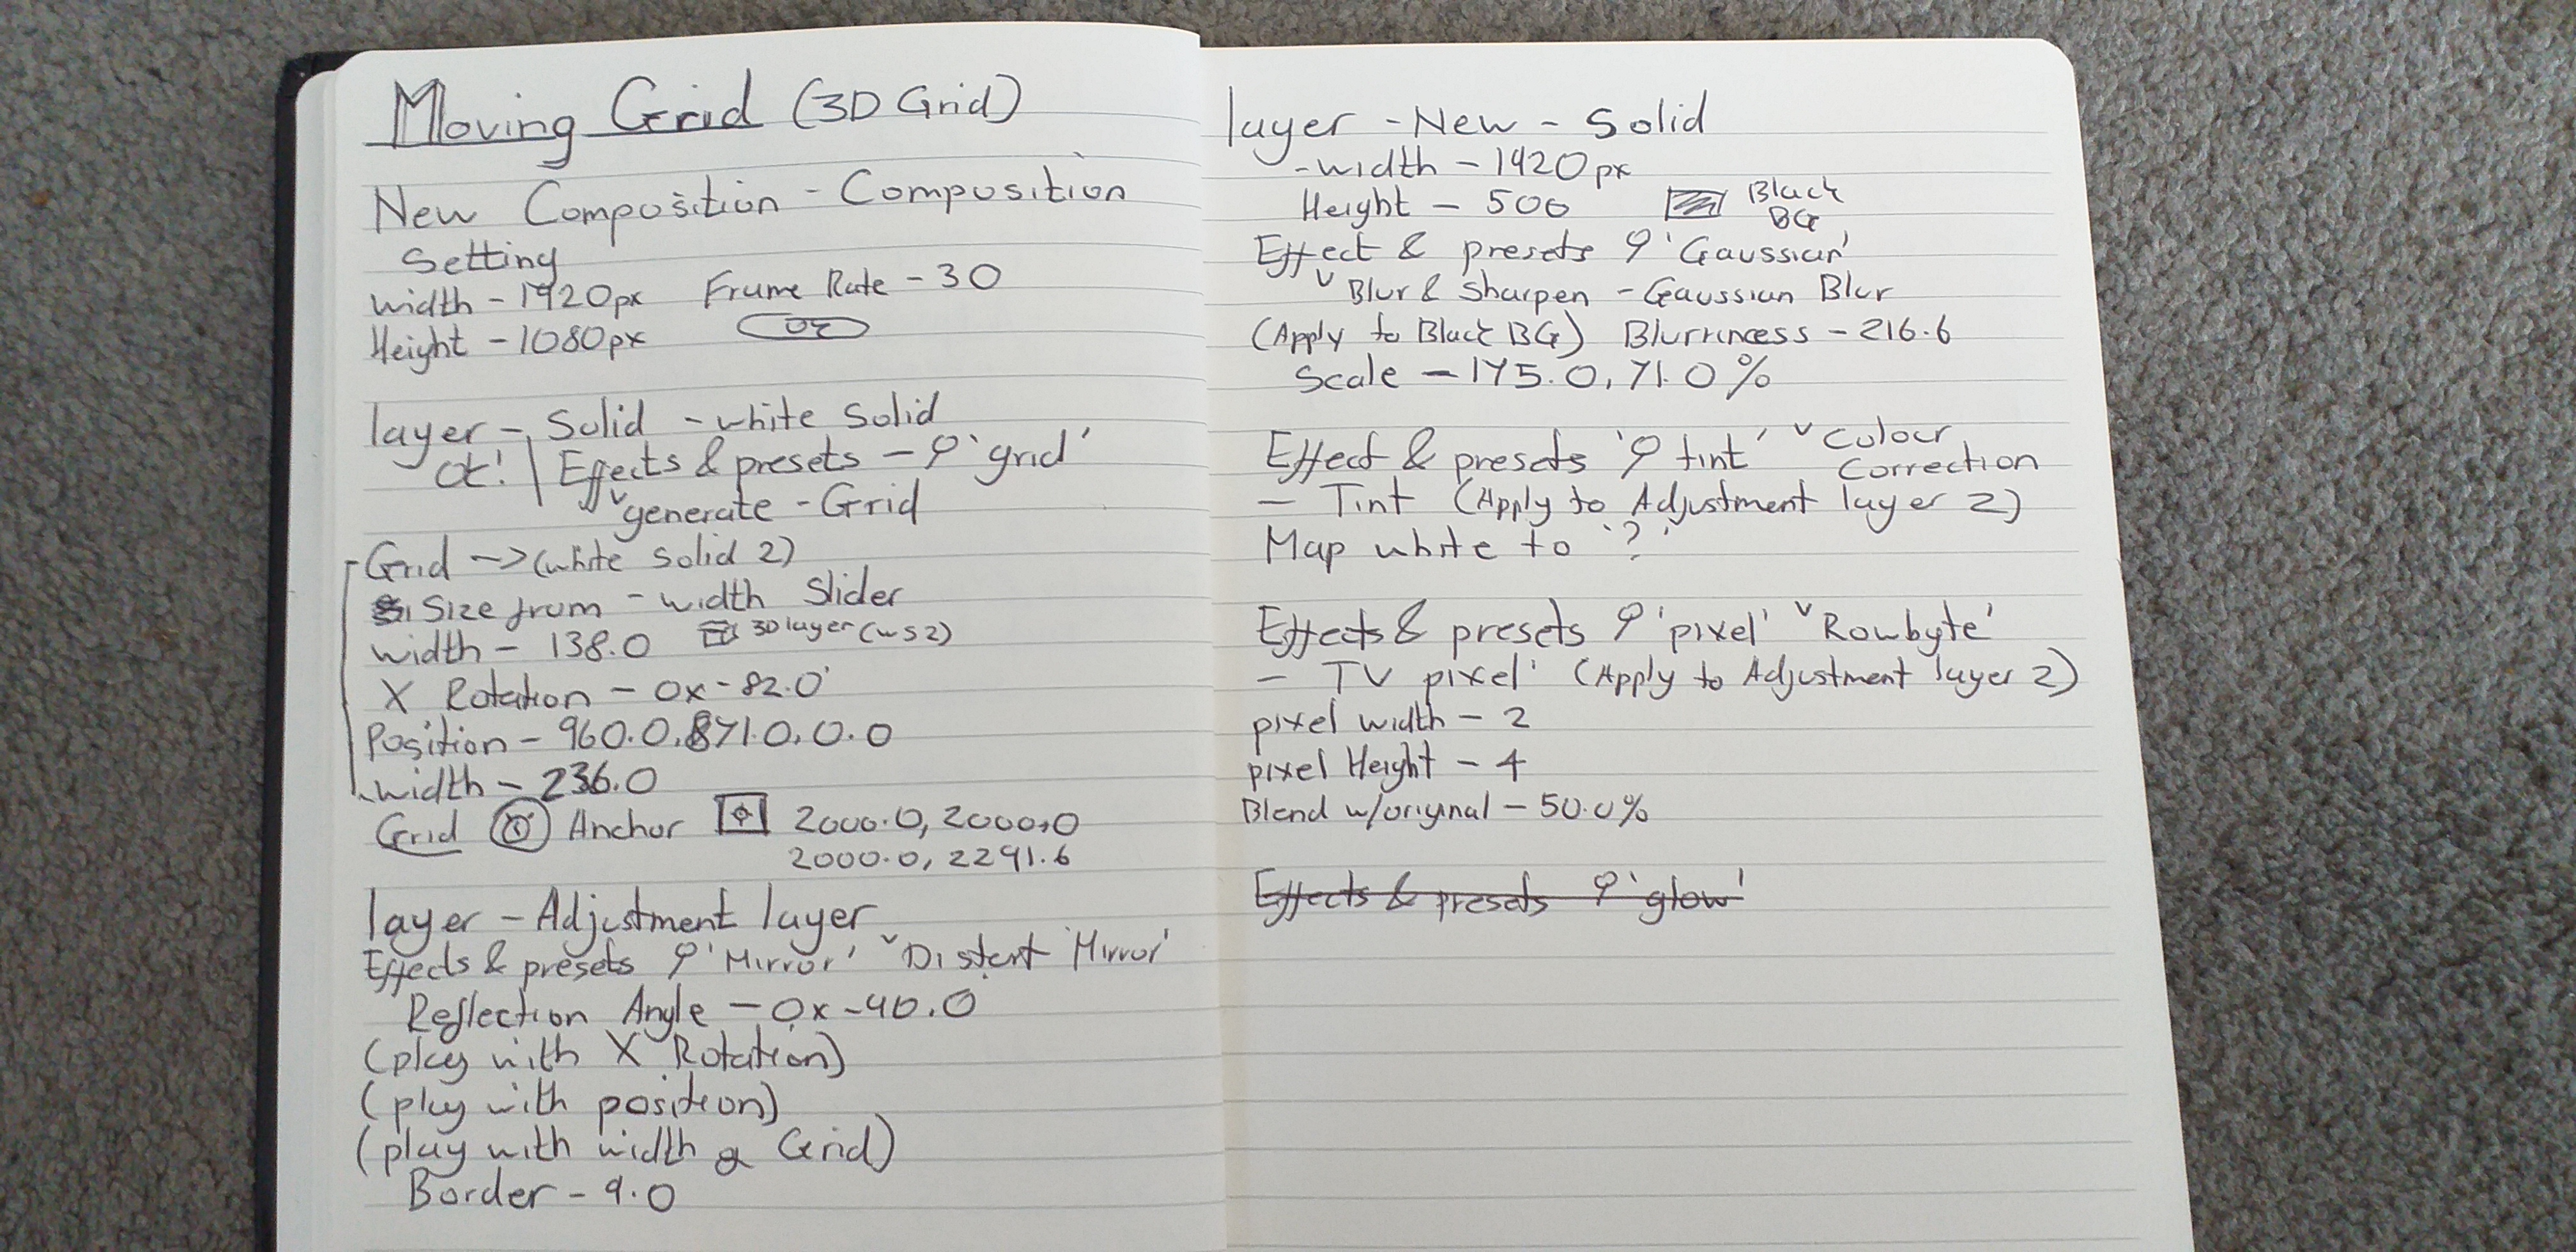 Moving Grid (3D Grid)
New Composition - Composition
Setting
width - 1920px Frame Rate - 30
Height - 1080px OK
layer - Solid - white Solid
OK! | Effects & presets - 'grid'
generate - Grid
Grid -> (white solid 2)
Size from - width Slider
width - 138.0 3D layer (ws2)
X Rotation - 0x-82.0°
Position - 960.0, 871.0, 0.0
width - 236.0
Grid Anchor 2000.0, 2000.0
2000.0, 2291.6
layer - Adjustment layer
Effects & presets 'Mirror' Distort 'Mirror'
Reflection Angle - 0x-90.0
(play with X Rotation)
(play with position)
(play with width & Grid)
Border - 9.0
layer - New - Solid
- width - 1920px
Height - 500 Black
BG
Effect & presets 'Gaussian'
Blur & Sharpen - Gaussian Blur
(Apply to Black BG) Blurriness - 216.6
Scale - 175.0, 71.0%
Effect & presets 'tint' Colour
Correction
- Tint (Apply to Adjustment layer 2)
Map white to '?'
Effects & presets 'pixel' Rowbyte'
- TV pixel' (Apply to Adjustment layer 2)
pixel width - 2
pixel Height - 4
Blend w/original - 50.0%
Effects & presets 'glow'